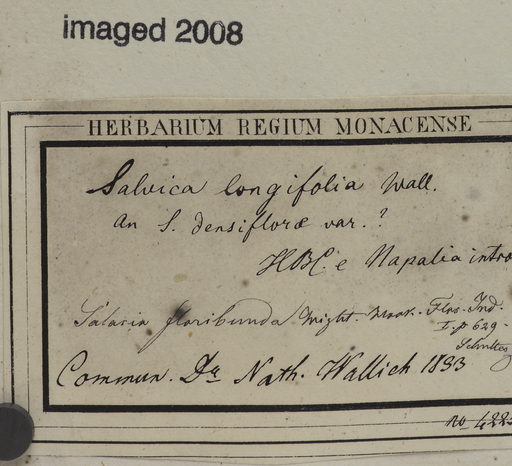 imaged 2008
HERBARIUM REGIUM MONACENSE
Salvica longifolia Wall.
An S. densifloræ var.?
HBC. e Napalia intro
floribunda Wight. Flor. Ind.
I. p 629.
Schultes
Commun. Dr Nath. Wallich 1833
No 422